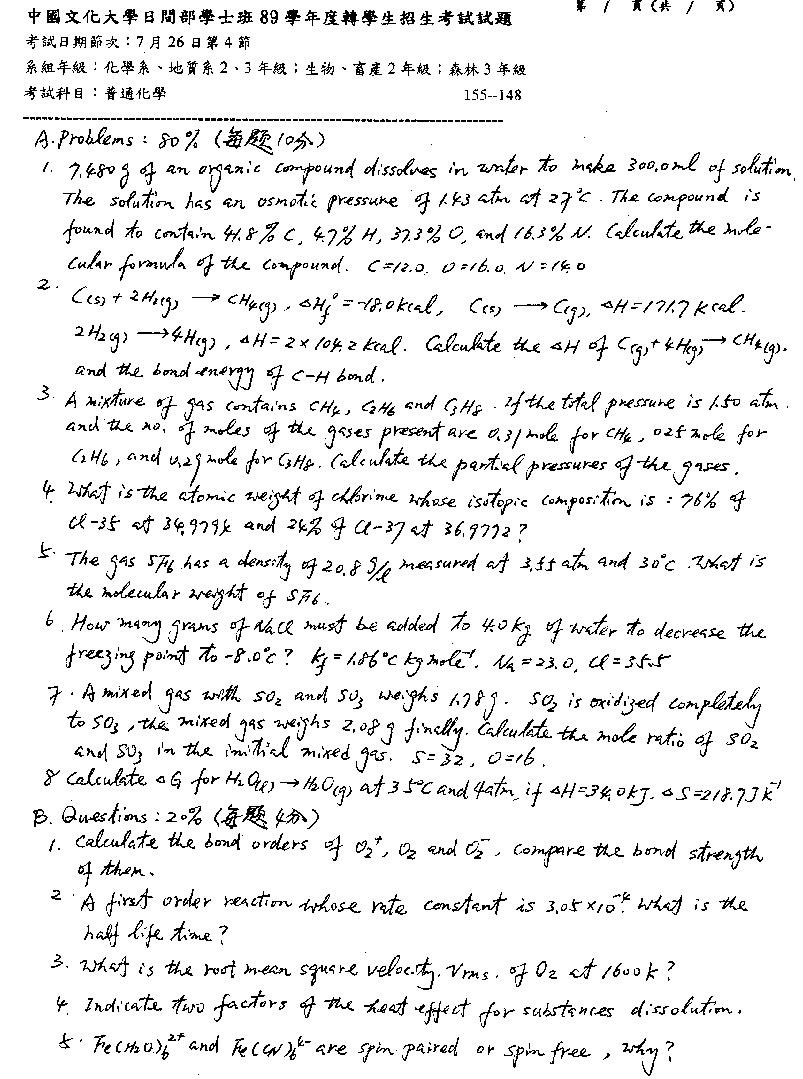 中國文化大學日間部學士班89學年度轉學生招生考試試題 第 1 頁(共 1 頁)
考試日期節次:7月26日第4節
系組年級:化學系、地質系2、3年級;生物、畜產2年級;森林3年級
考試科目:普通化學 155--148
A. Problems: 80% (每題10分)
1. 7.480 g of an organic compound dissolves in water to make 300.0 ml of solution.
The solution has an osmotic pressure of 1.43 atm at 27°C. The compound is
found to contain 41.8% C, 4.7% H, 37.3% O, and 16.3% N. Calculate the mole-
cular formula of the compound. C=12.0. O=16.0, N=14.0
2. C(s) + 2H2(g) → CH4(g), ΔHf° = -18.0 kcal, C(s) → C(g), ΔH = 171.7 kcal.
2H2(g) → 4H(g), ΔH = 2 × 104.2 kcal. Calculate the ΔH of C(g) + 4H(g) → CH4(g).
and the bond energy of C-H bond.
3. A mixture of gas contains CH4, C2H6 and C3H8. If the total pressure is 1.50 atm.
and the no. of moles of the gases present are 0.31 mole for CH4, 0.25 mole for
C2H6, and 0.29 mole for C3H8. Calculate the partial pressures of the gases.
4. What is the atomic weight of chlorime whose isotopic composition is : 76% of
Cl-35 at 34.979k and 24% of Cl-37 at 36.9772?
5. The gas SF6 has a density of 20.8 g/l measured at 3.55 atm and 30°C. What is
the molecular weight of SF6.
6. How many grams of NaCl must be added to 4.0 kg of water to decrease the
freezing point to -8.0°C? Kf = 1.86°C kg mole⁻¹. Na = 23.0, Cl = 35.5
7. A mixed gas with SO2 and SO3 weighs 1.78 g. SO2 is oxidized completely
to SO3, the mixed gas weighs 2.08 g finally. Calculate the mole ratio of SO2
and SO3 in the initial mixed gas. S=32, O=16.
8 Calculate ΔG for H2O(l) → H2O(g) at 35°C and 4atm, if ΔH=34.0 kJ. ΔS=218.7 J K⁻¹
B. Questions: 20% (每題4分)
1. Calculate the bond orders of O2⁺, O2 and O2⁻, compare the bond strength
of them.
2. A first order reaction whose rate constant is 3.05 × 10⁻⁴. What is the
half life time?
3. What is the root mean square velocity, Vrms. of O2 at 1600 k?
4. Indicate two factors of the heat effect for substances dissolution.
5. Fe(H2O)6²⁺ and Fe(CN)6⁴⁻ are spin paired or spin free, why?